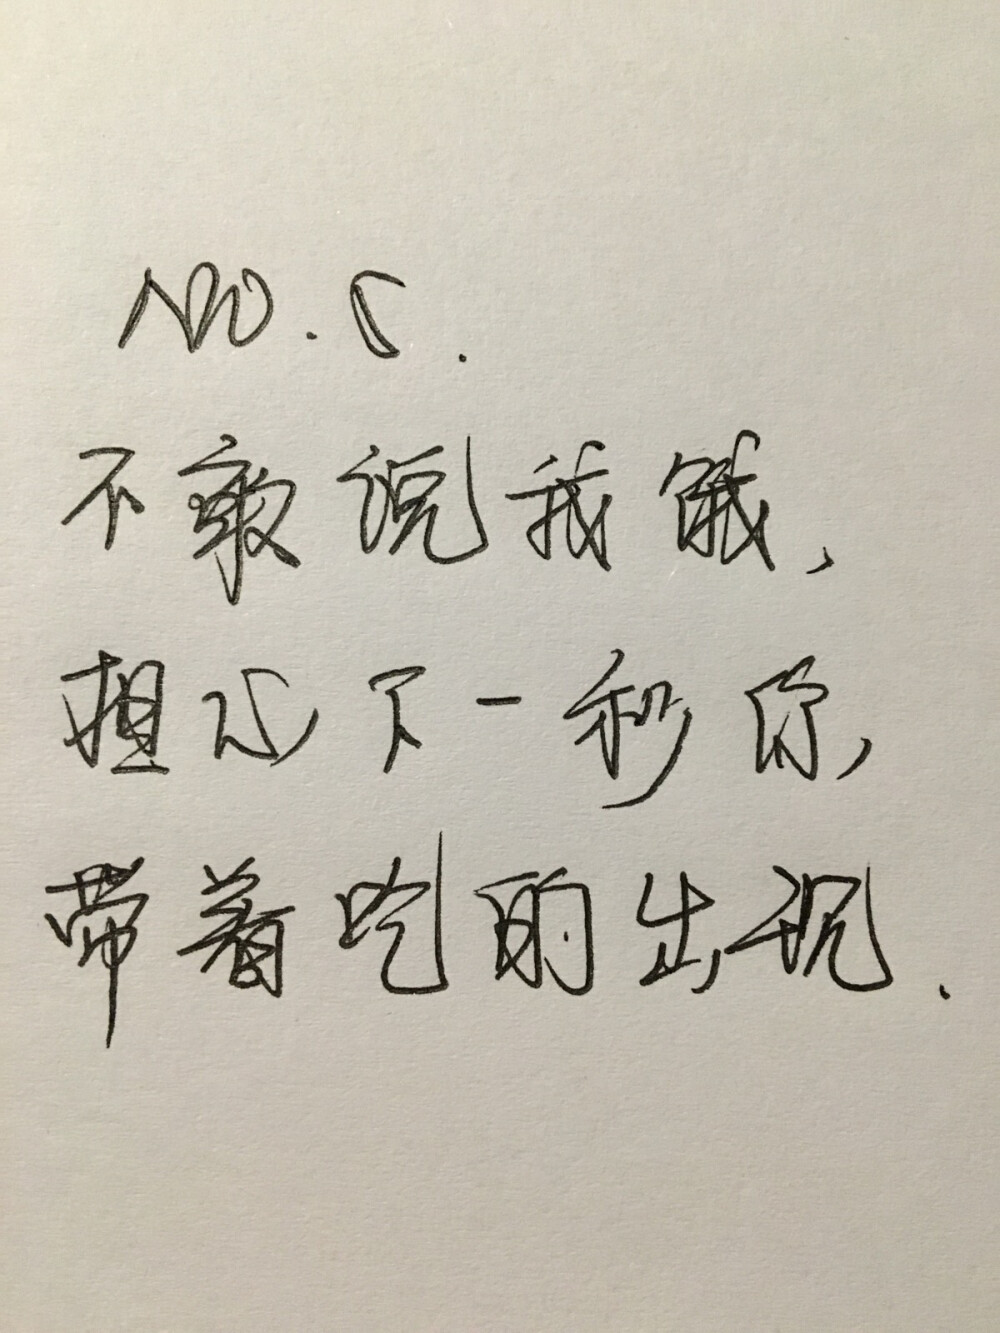 NO.5.
不敢说我饿,
担心下一秒你,
带着吃的出现.